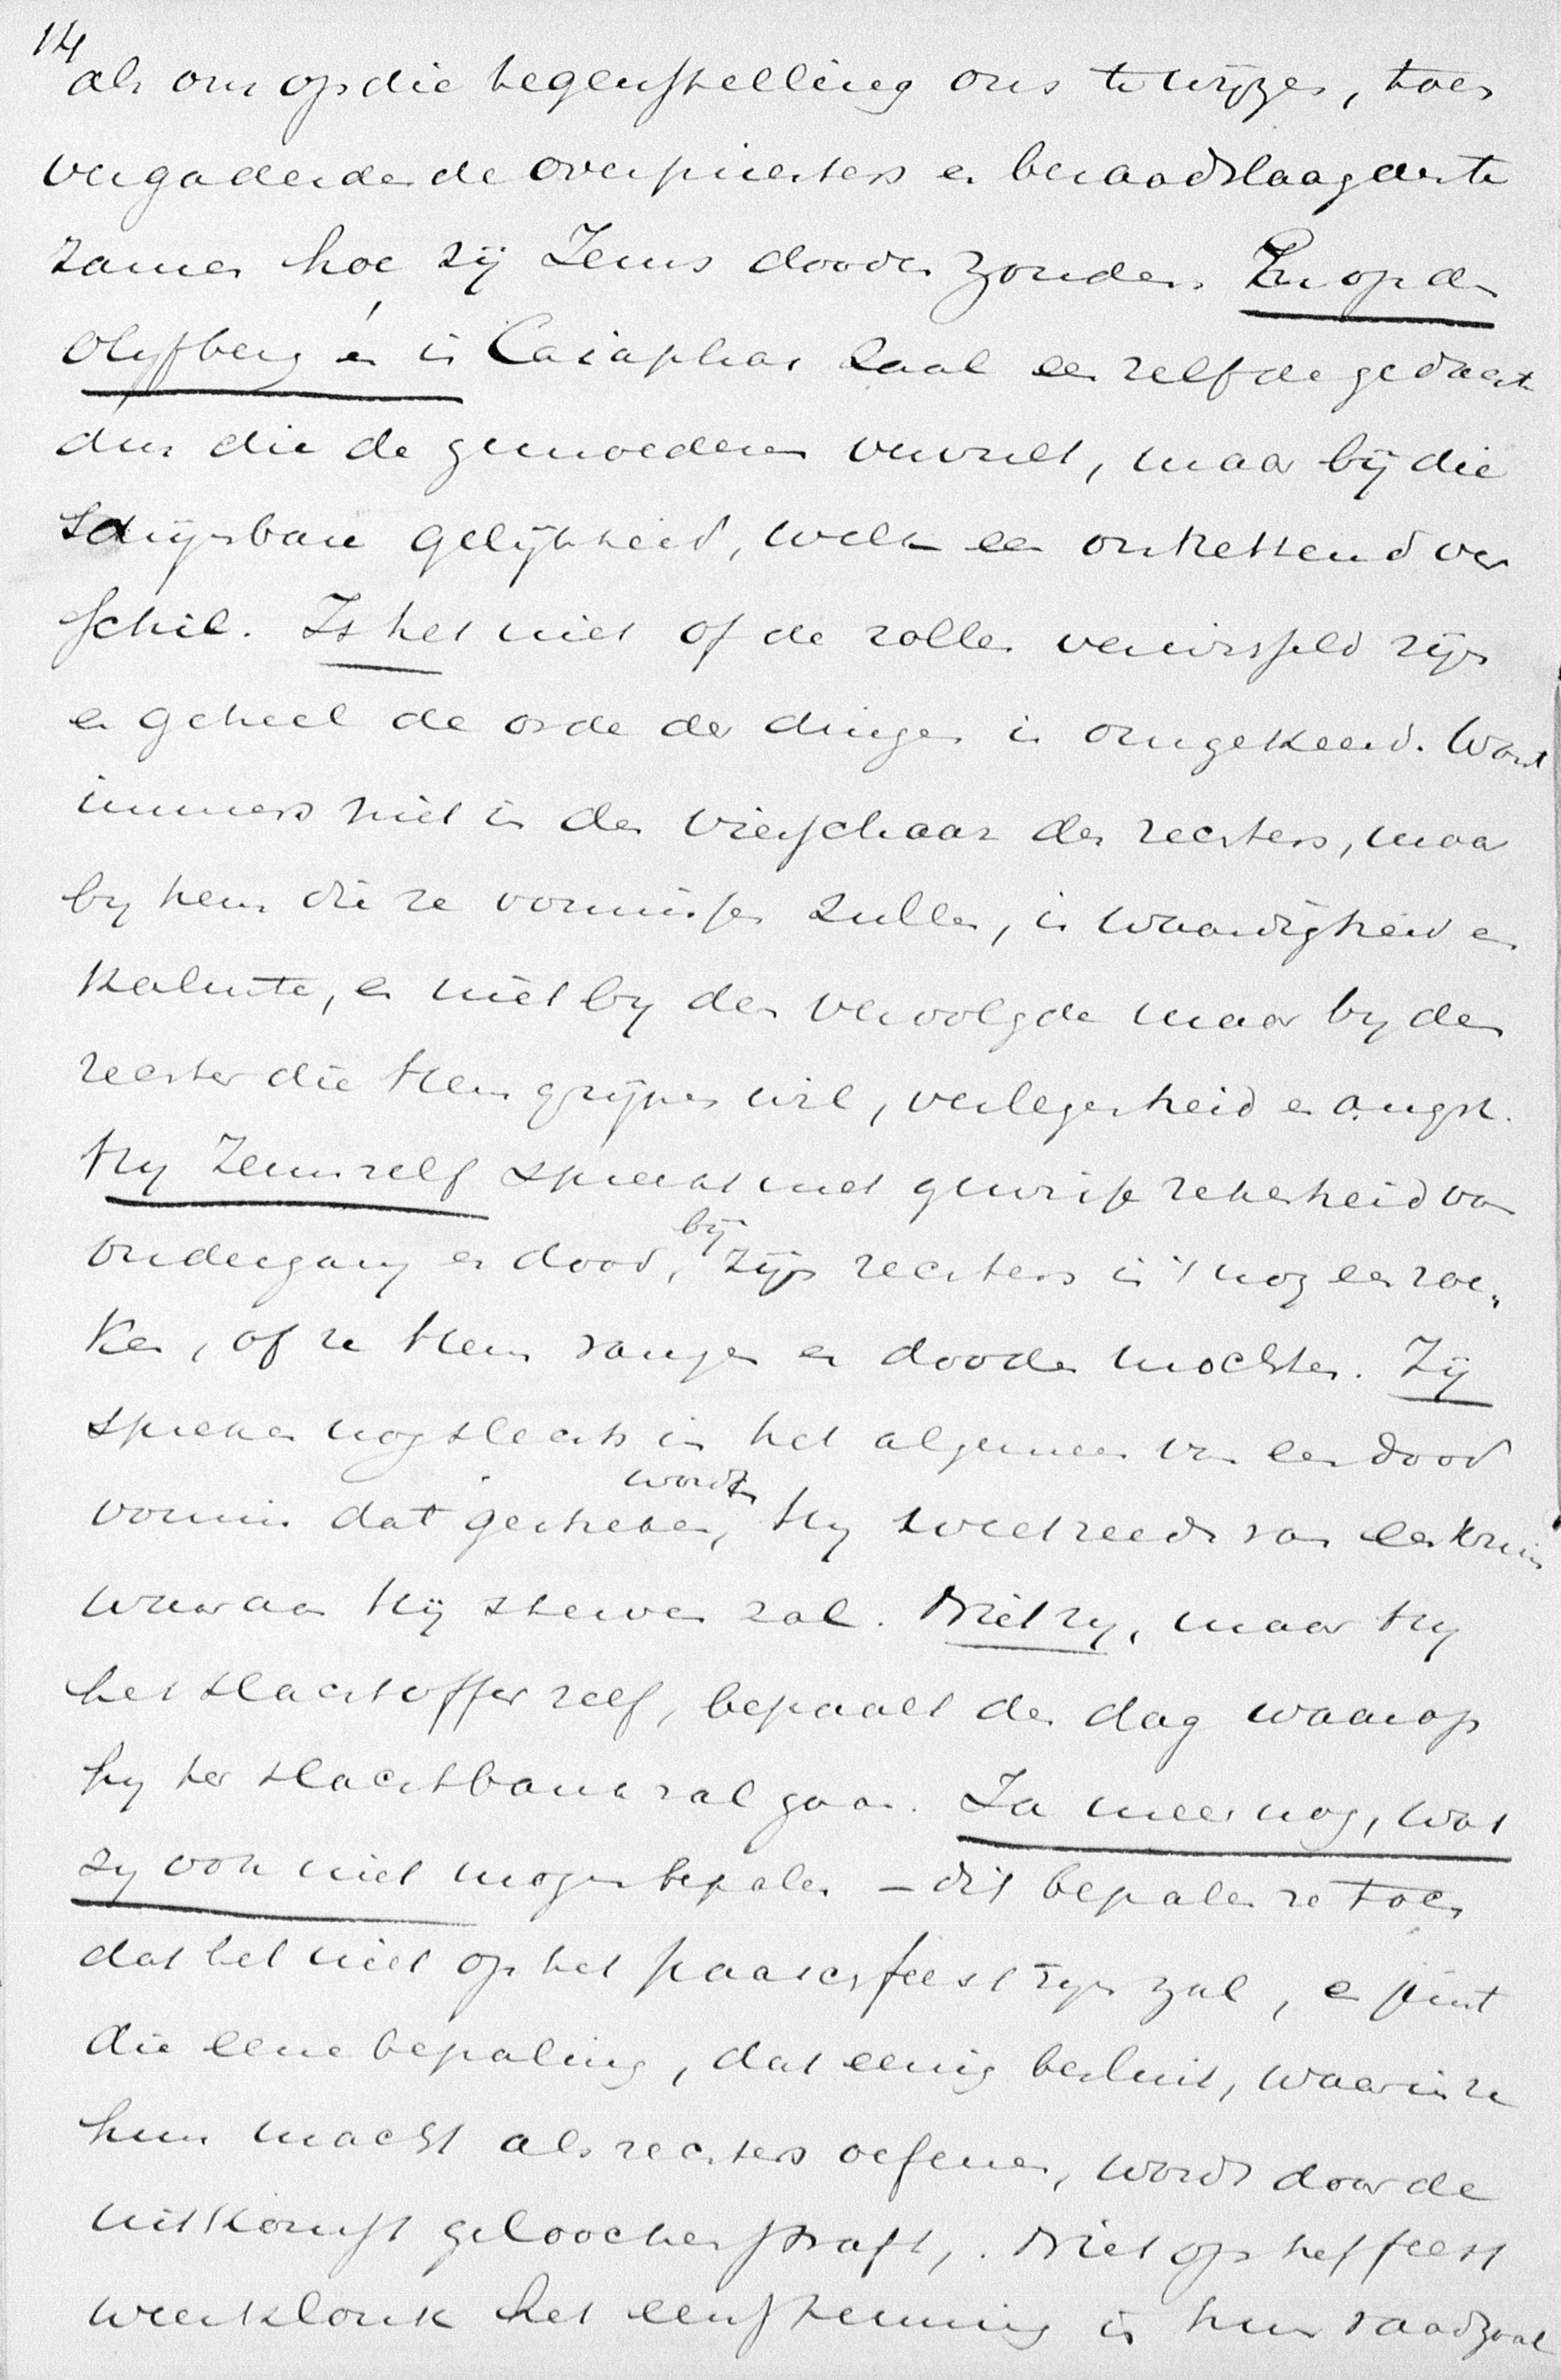 14
als om op die tegenstelling ons te wijzen, toen
vergaderden de overpriesters en beraadslaagden te
zamen hoe zij Jezus dooden zouden. En op den
Olijfberg én in Caiaphas zaal een zelfde gedachte
dus die de gemoederen vervult, maar bij die
schijnbare gelijkheid, welk een ontzettend ver
schil. Is het niet of de rollen verwisseld zijn
en geheel de orde der dingen is omgekeerd. Want
immers niet in de vierschaar der rechters, maar
by hem die ze vonnissen zullen, is waardigheid en
kalmte, en niet by den vervolgde maar by den
rechter die Hem grijpen wil, verlegenheid en angst.
Hy Jezus zelf spreekt met gewisse zekerheid van
ondergang en dood, bij zijn rechters is 't nog een zoe-
ken, of ze Hem vangen en dooden mochten. Zij
spreken nog slechts in het algemeen van een dood
vonnis dat gestreken wordt, Hy weet reeds van een kruis
waaraan Hij sterven zal. Niet zy, maar Hy
het slachtoffer zelf, bepaalt den dag waarop
hy ter slachtbank zal gaan. Ja meer nog, wat
zy ook niet mogen bepalen – dit bepalen ze toch
dat het niet op het paaschfeest zijn zal, en juist
die eene bepaling, dat eenig besluit, waarin ze
hun macht als rechters oefenen, wordt door de
uitkomst geloochenstraft. Niet op het feest
weerklonk het eenstemmig in hun raadzaal